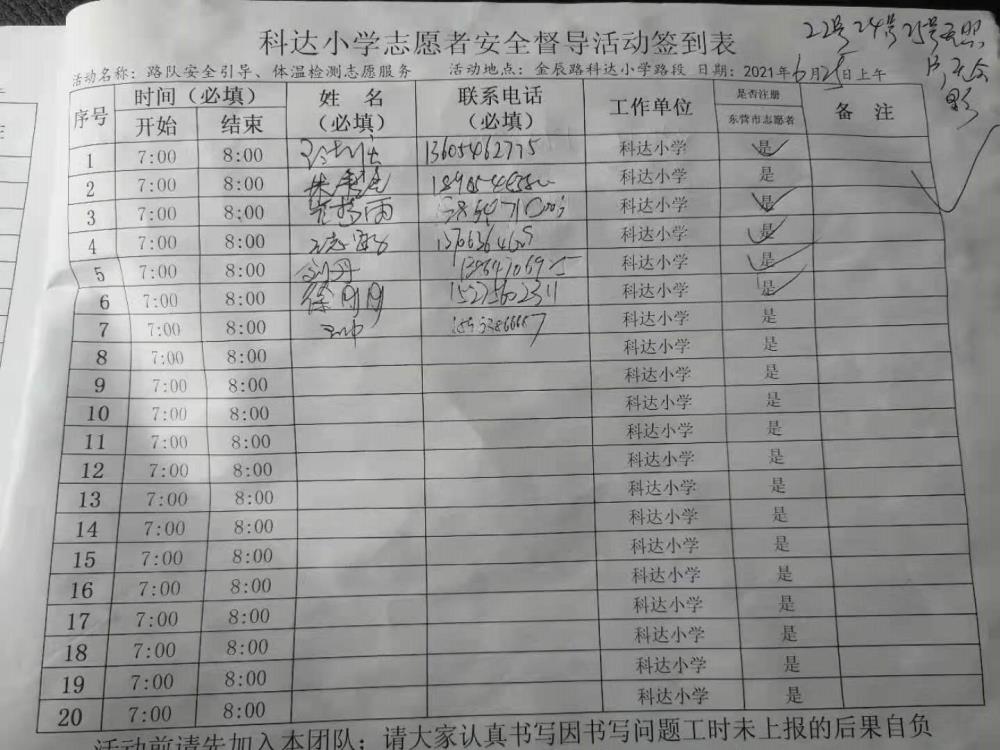 22号24号25号无照
片,无合
影
科达小学志愿者安全督导活动签到表
活动名称：路队安全引导、体温检测志愿服务 活动地点：金辰路科达小学路段 日期：2021年6月25日上午
序号 时间（必填） 姓 名（必填） 联系电话（必填） 工作单位 是否注册东营市志愿者 备 注
开始 结束
1 7:00 8:00 13605462775 科达小学 是
2 7:00 8:00 科达小学 是
3 7:00 8:00 科达小学 是
4 7:00 8:00 科达小学 是
5 7:00 8:00 刘丹 科达小学 是
6 7:00 8:00 徐月月 15275602311 科达小学 是
7 7:00 8:00 科达小学 是
8 7:00 8:00 科达小学 是
9 7:00 8:00 科达小学 是
10 7:00 8:00 科达小学 是
11 7:00 8:00 科达小学 是
12 7:00 8:00 科达小学 是
13 7:00 8:00 科达小学 是
14 7:00 8:00 科达小学 是
15 7:00 8:00 科达小学 是
16 7:00 8:00 科达小学 是
17 7:00 8:00 科达小学 是
18 7:00 8:00 科达小学 是
19 7:00 8:00 科达小学 是
20 7:00 8:00 科达小学 是
活动前请先加入本团队；请大家认真书写因书写问题工时未上报的后果自负